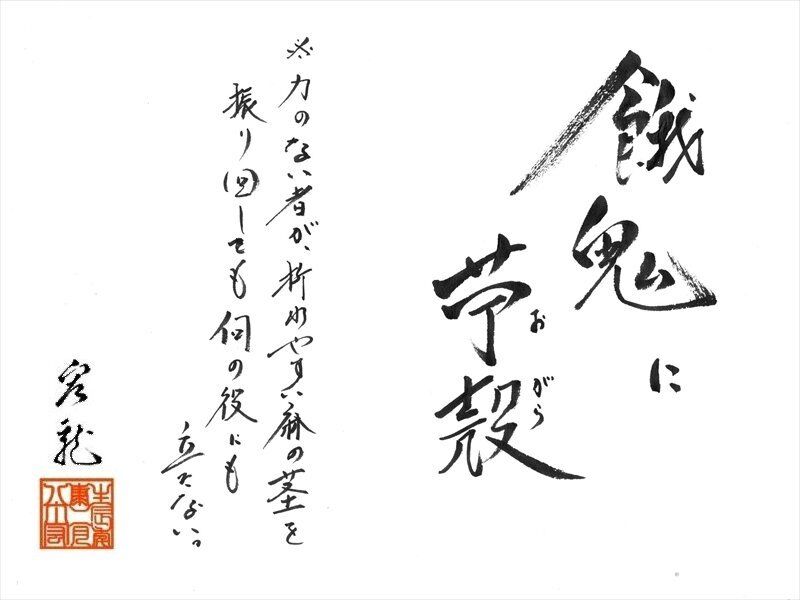 餓鬼に
苧殻
おがら
※力のない者が、折れやすい麻の茎を
振り回しても何の役にも
立たない。